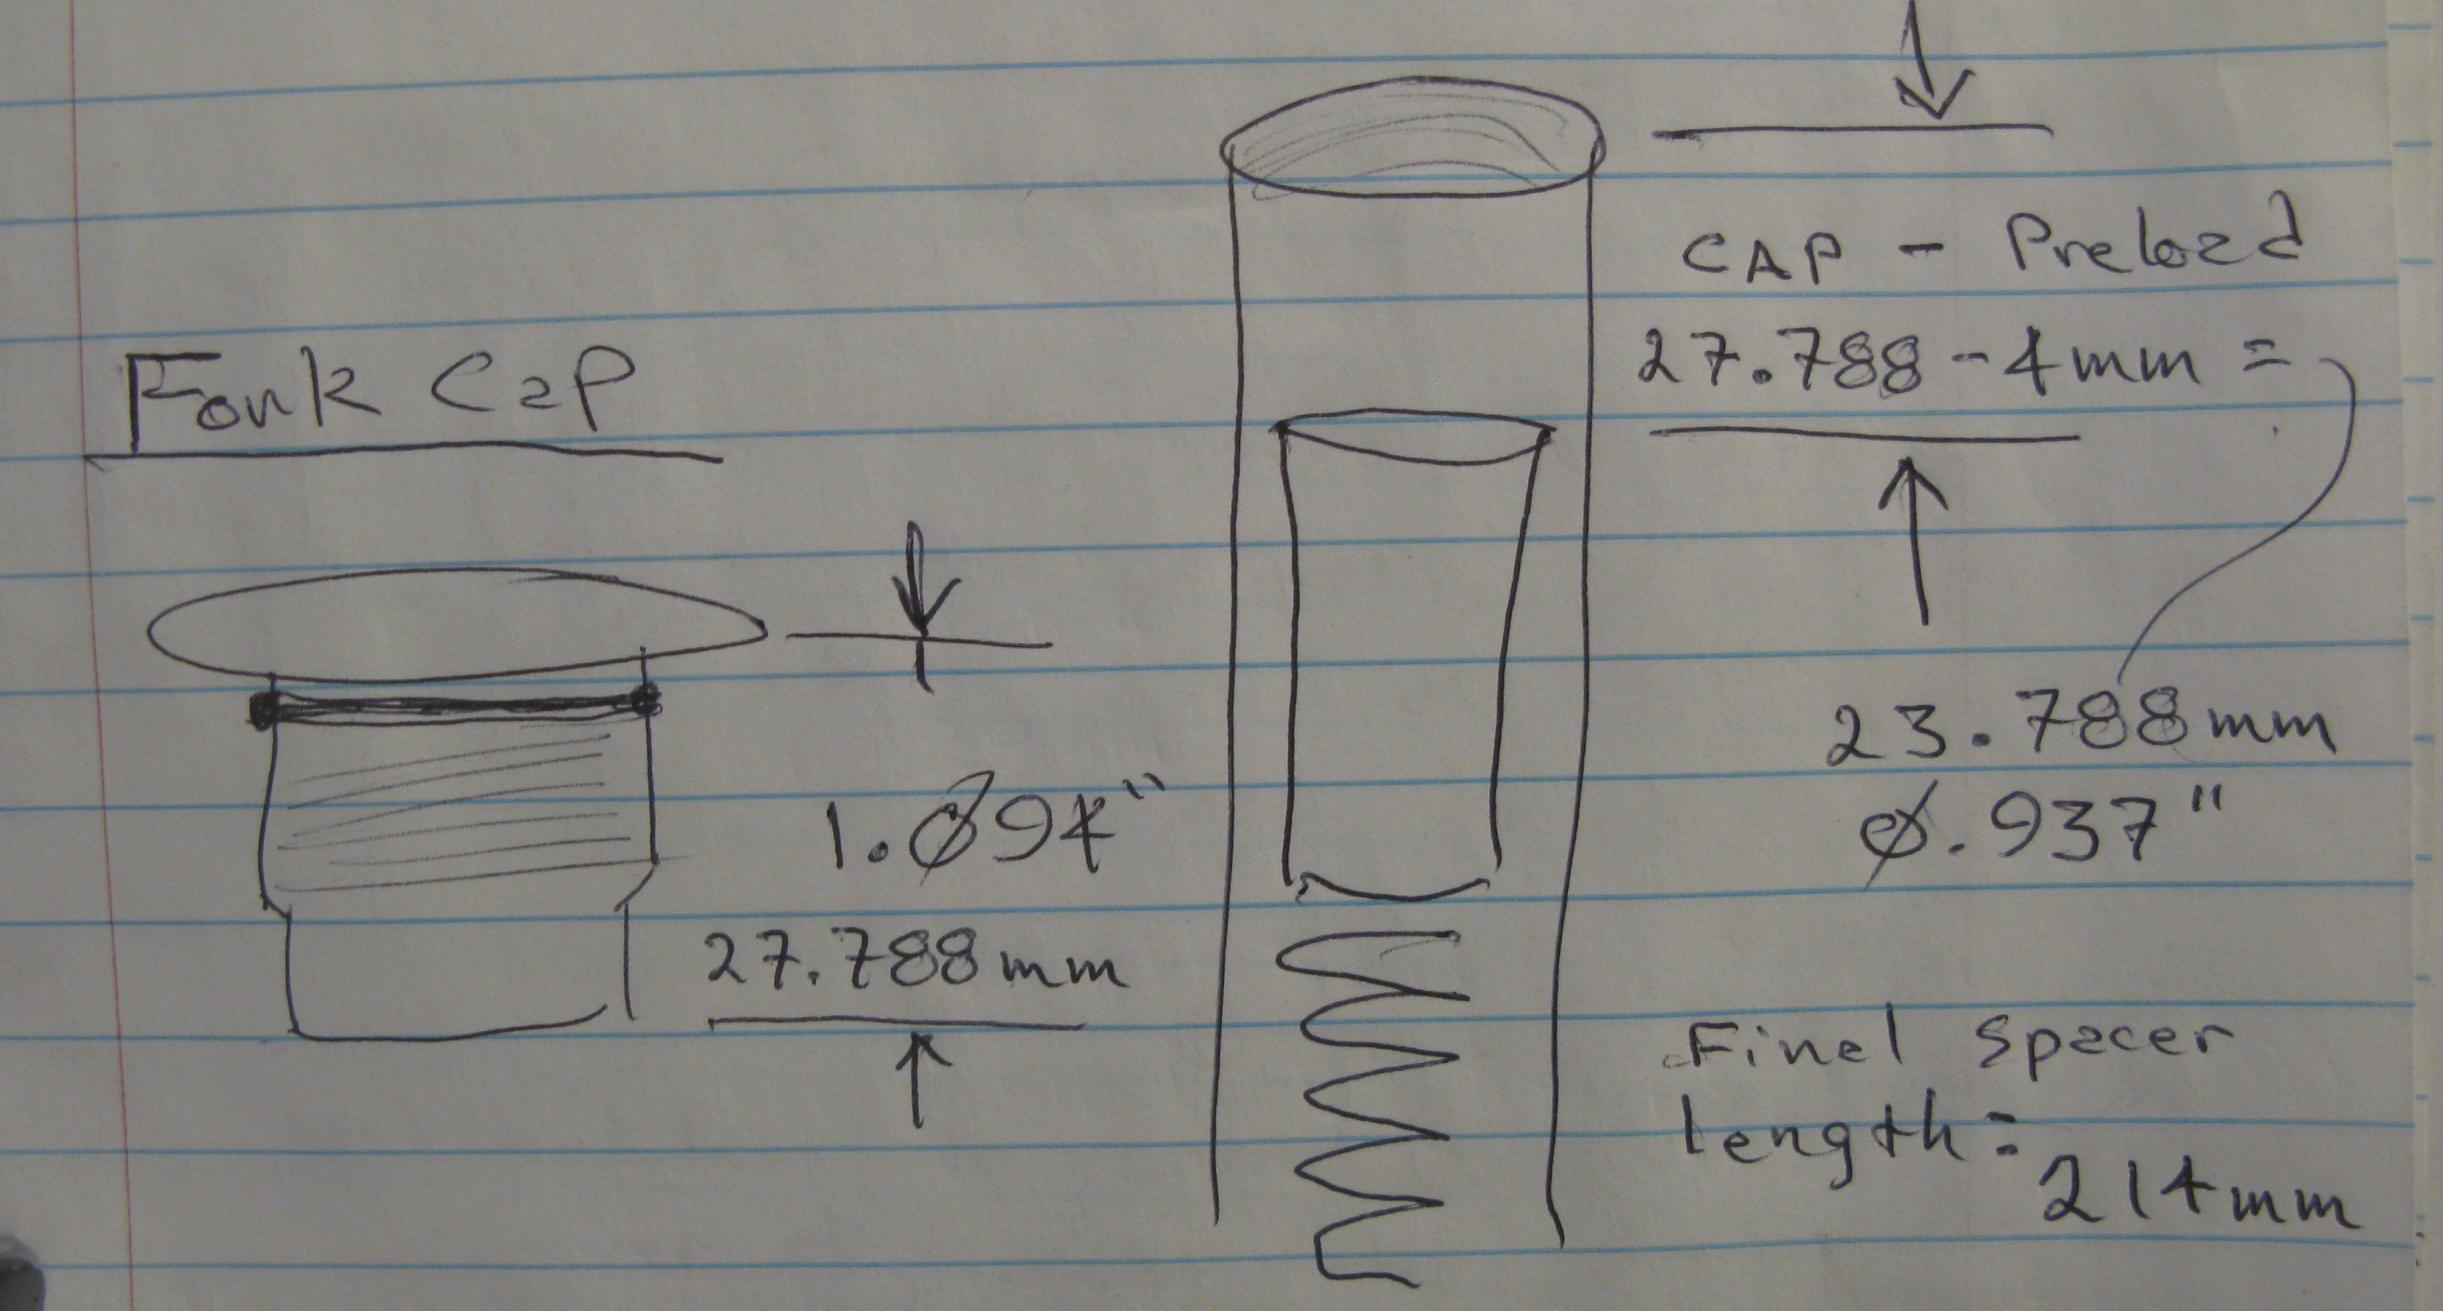 Fork Cap
1.094"
27.788mm
CAP - Preload
27.788 - 4mm =
23.788mm
0.937"
Final spacer
length =
214mm